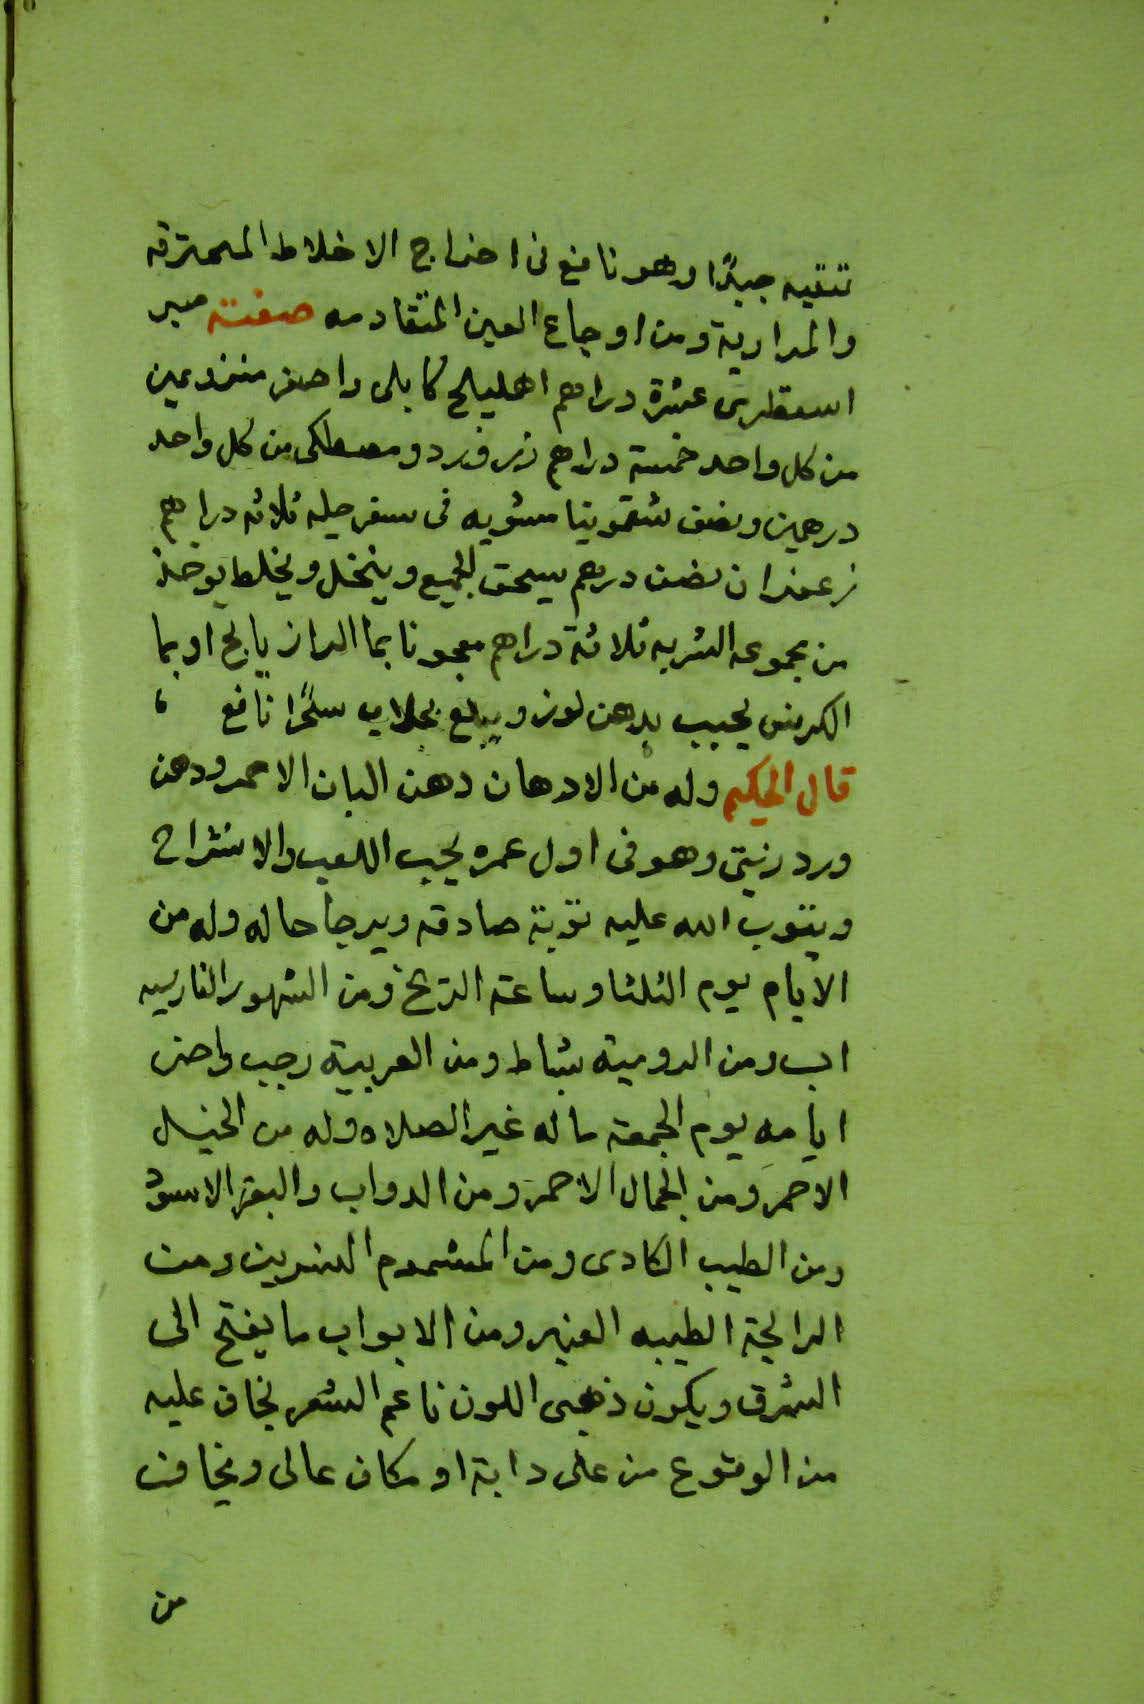 تنقيه جيدًا وهو نافع فى اخراج الاخلاط المحترقه
والمرارية ومن اوجاع العين المتقادمه صفته صبر
اسقطرى عشرة دراهم اهليلج كابلى واصفر منزوعين
من كل واحد خمسة دراهم زر ورد ومصطكى من كل واحد
درهمين ونصف سقمونيا مشويه فى سفرجله ثلاثه دراهم
زعفران نصف درهم يسحق الجميع وينخل ويخلط يوخذ
من مجموعه الشربه ثلاثة دراهم معجونا بما الرازيانج او بما
الكرفس يحبب بدهن لوز ويبلع بجلاب سحرًا نافع
قال الحكيم وله من الادهان دهن البان الاحمر ودهن
ورد زيتى وهو فى اول عمره يحب اللعب والانشراح
ويتوب الله عليه توبة صادقه ويرجا حاله وله من
الايام يوم الثلثا وساعته المريخ ومن الشهور الفارسيه
اب ومن الروميه شباط ومن العربية رجب واخر
ايامه يوم الجمعة ماله غير الصلاه وله من الخيل
الاحمر ومن الجمال الاحمر ومن الدواب والبقر الاسود
ومن الطيب الكادى ومن المشموم النسرين ومن
الرايحة الطيبه العنبر ومن الابواب ما يفتح الى
الشرق ويكون ذهبى اللون ناعم الشعر يخاف عليه
من الوقوع من على دابة او مكان عالى ويخاف
من